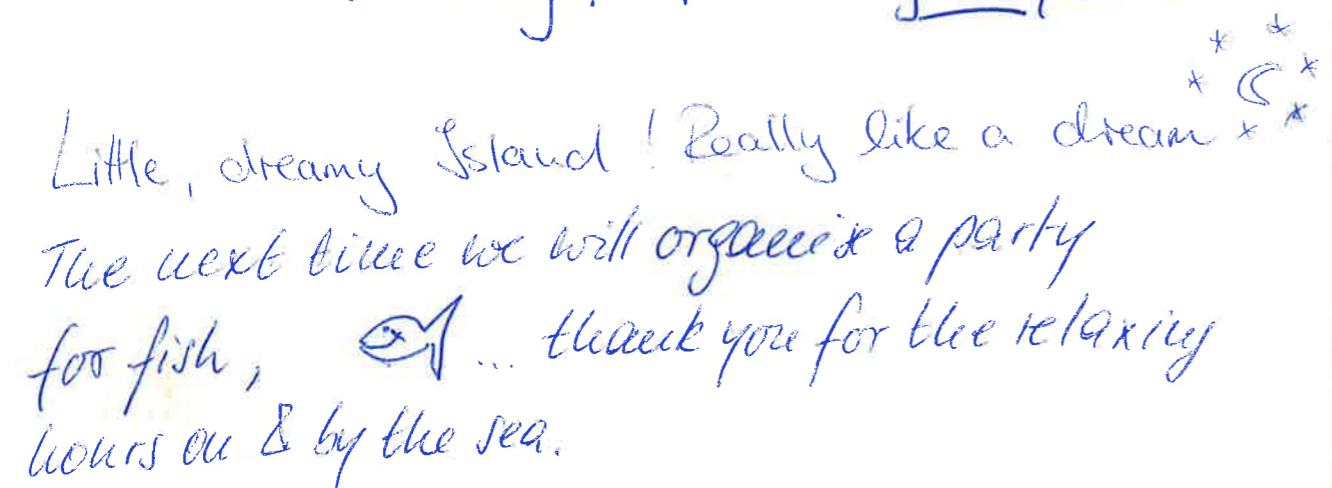 Little, dreamy Island! Really like a dream
The next time we will organize a party
for fish, ... thank you for the relaxing
hours on & by the sea.